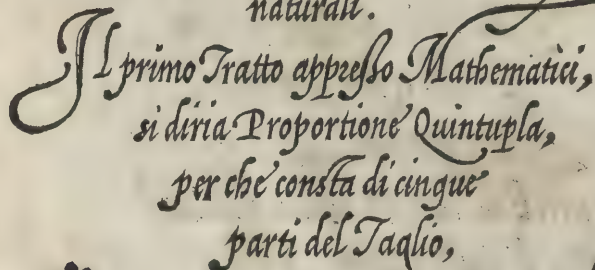 naturali.
Il primo Tratto appresso Mathematici,
si diria Proportione Quintupla,
per che consta di cinque
parti del Taglio,